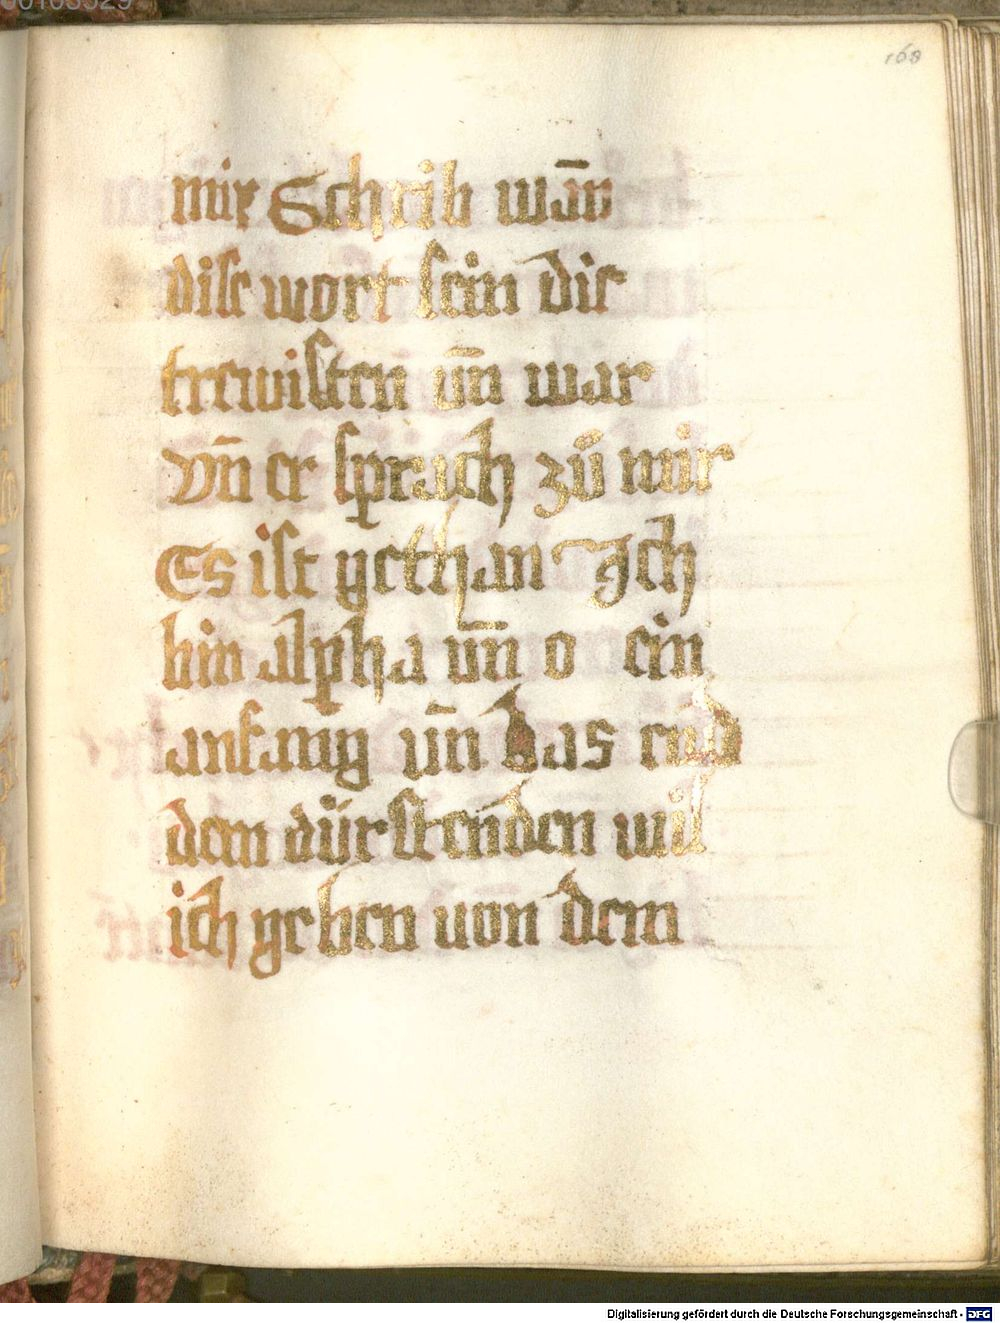 168
mir Schrib wān
dise wort sein die
trewisten vn̄ war
vn̄ er sprach zů mir
Es ist gethan Ich
bin alpha vn̄ o ein
anfang vn̄ das end
dem dürstenden wil
ich geben von dem
Digitalisierung gefördert durch die Deutsche Forschungsgemeinschaft - DFG